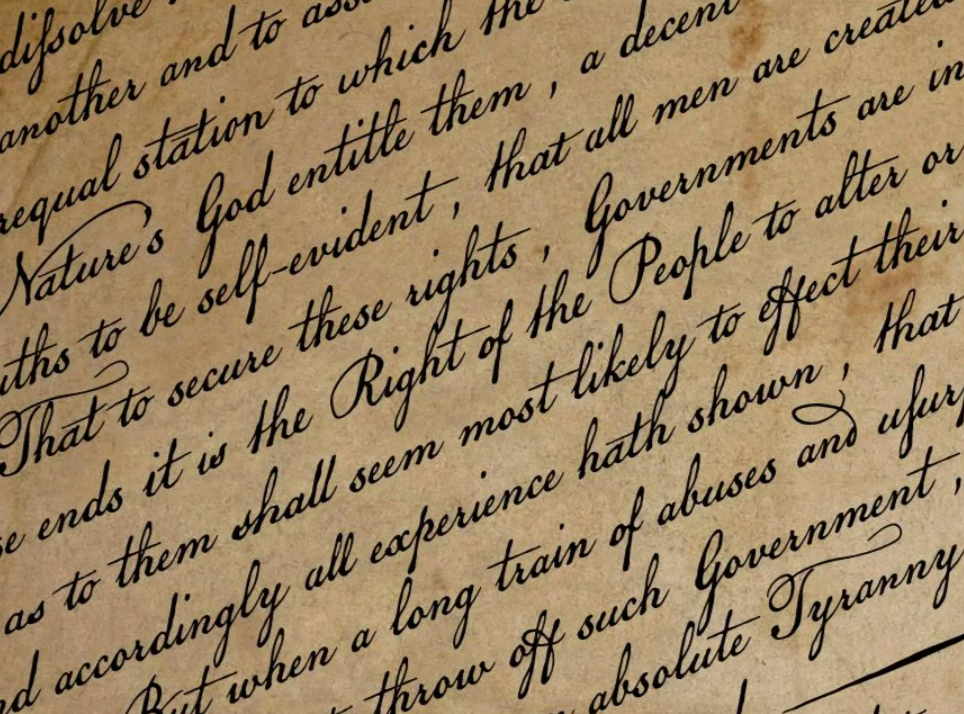 difsolve
another and to
requal station to which the
Nature's God entitle them , a decent
to be self-evident , that all men are created
That to secure these rights , Governments are in
ends it is the Right of the People to alter or
as to them shall seem most likely to effect their
accordingly all experience hath shown , that
But when a long train of abuses and ufurp
throw off such Government ,
absolute Tyranny